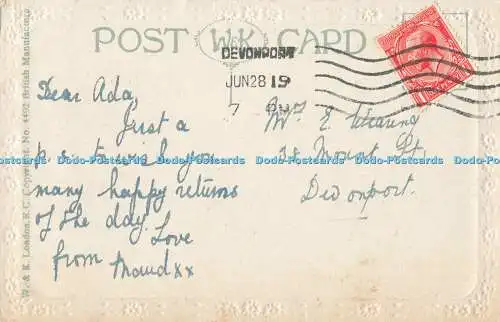 POST W.K CARD
DEVONPORT
JUN 28 19
7 PM
Dear Ada,
Just a
p.c. to wish you
many happy returns
of the day.
Love
from Maud xx
E.
28 Mount St,
Devonport.
W. & K. London E.C. Copyright. No. 4492 British Manufacture
Dodo-Postcards Dodo-Postcards Dodo-Postcards Dodo-Postcards Dodo-Postcards Dodo-Postcards Dodo-Postcards